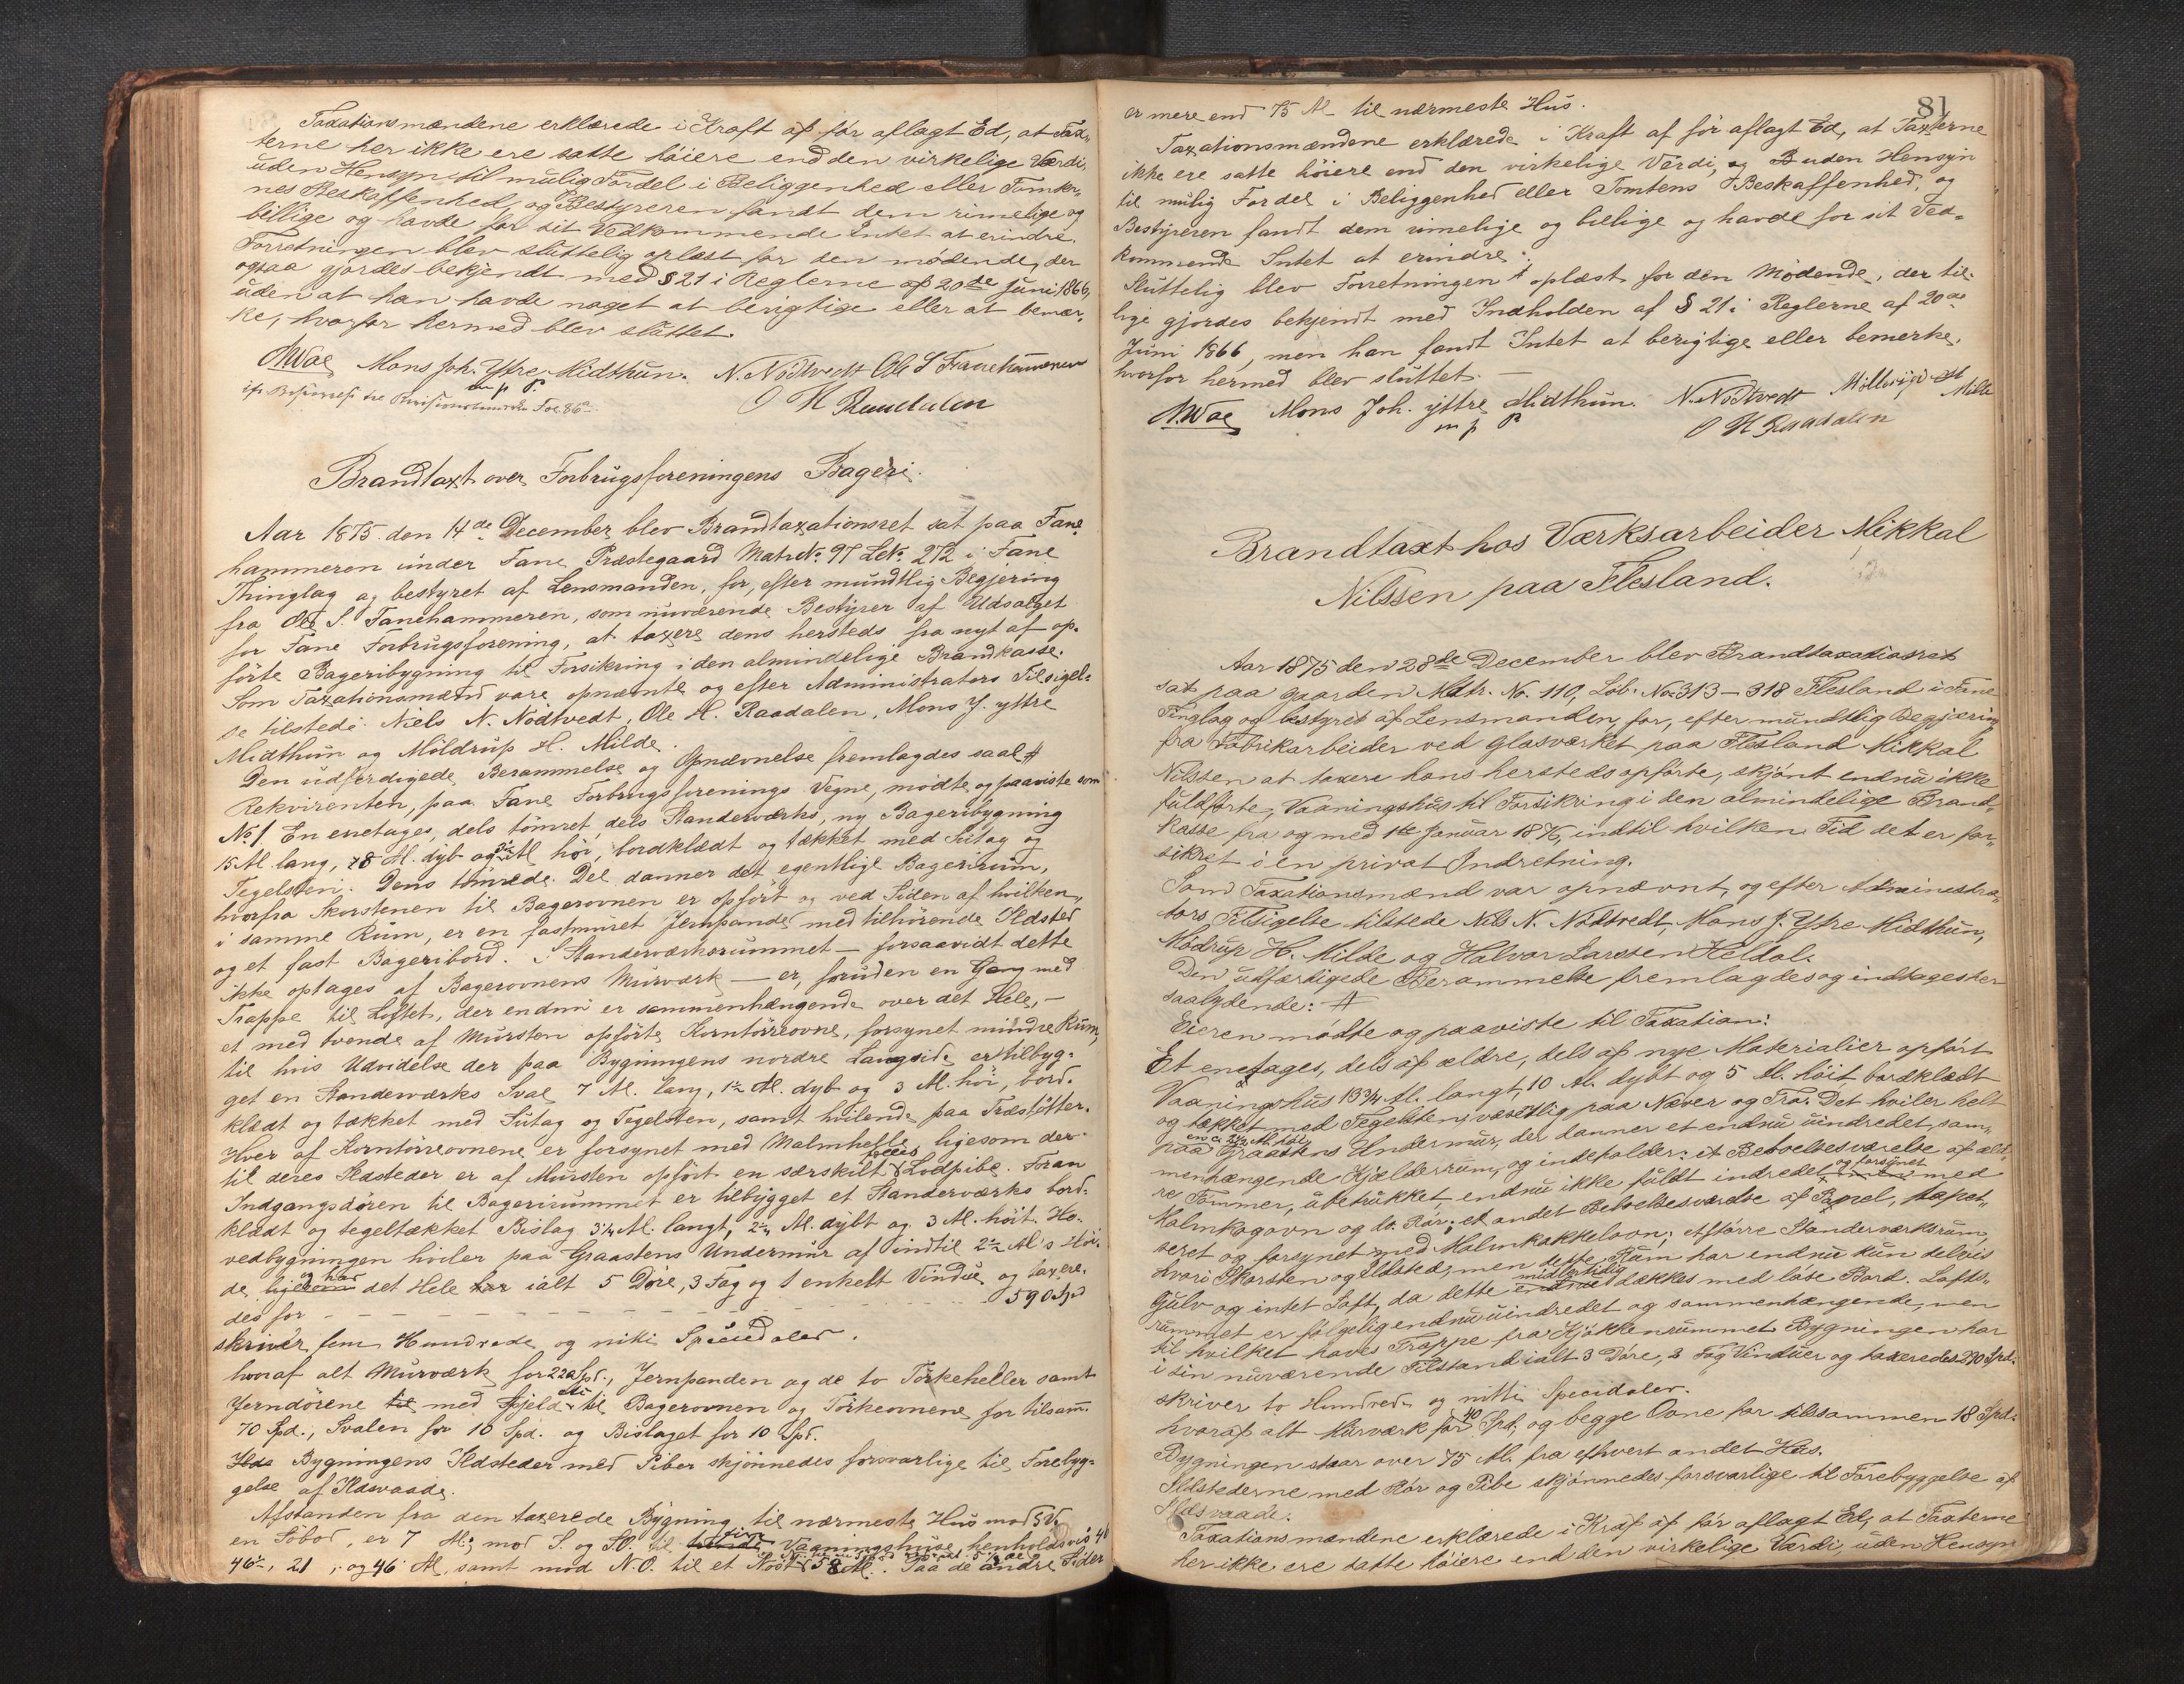 Taxationsmændene erklærede i Kraft af før aflagt Ed, at Tax-
terne her ikke ere satte høiere end den virkelige Værdi,
uden Hensyn til mulig Fordel i Beliggenhed eller Tomter-
nes Beskaffenhed, og Bestyreren fandt dem rimelige og
billige og havde for sit Vedkommende Intet at erindre.
Forretningen blev sluttelig oplæst for den mødende, der
ogsaa gjordes bekjendt med § 21 i Reglerne af 20de Juni 1866,
uden at han havde noget at berigtige eller at bemær-
ke, hvorfor hermed blev sluttet.
AWae Mons Joh. Yttre Midthun. N. Nödtvedt Ole S Fanehammeren
m p P. O H Raadalen
Fol. 86
Brandtaxt over Forbrugsforeningens Bageri.
Aar 1875 den 14de December blev Brandtaxationsret sat paa Fane
hammeren under Fane Præstegaard Matr No. 97 LNo. 272 i Fane
Thinglag og bestyret af Lensmanden, for, efter mundtlig Begjering
fra Ole S. Fanehammeren, som nuværende Bestyrer af Udsalget
for Fane Forbrugsforening, at taxere dens hersteds fra nyt af op-
førte Bageribygning til Forsikring i den almindelige Brandkasse.
Som Taxationsmænd vare opnævnte og efter Administrators Tilsigel-
se tilstede: Niels N. Nödtvedt, Ole H. Raadalen, Mons J. yttre
Midthun og Mildrup H. Milde.
Den udfærdigede Berammelse og Opnævnelse fremlagdes saal #
Rekvirenten, paa Fane Forbrugsforenings Vegne, mødte og paaviste som
No. 1. En enetages, dels tømret, dels Standerværks, ny Bageribygning
15 Al. lang, 8 Al. dyb og Al høi, bordklædt og tækket med Sutag og
Tegelsten. Dens tømrede Del danner det egentlige Bagerirum,
hvorfra Skorstenen til Bagerovnen er opført og ved Siden af hvilken,
i samme Rum, er en fastmuret Jernpande med tilhørende Ildsted
og et fast Bageribord. I Standerværksrummet – forsaavidt dette
ikke optages af Bagerovnens Murværk – er, foruden en Gang med
Trappe til Loftet, der endnu er sammenhængende over det Hele, –
et med tvende af Mursten opførte Korntörreovne, forsynet mindre Rum,
til hvis Udvidelse der paa Bygningens nordre Langside er tilbyg-
get en Standerværks Sval 7 Al. lang, 1½ Al. dyb og 3 Al. høi, bord-
klædt og tækket med Sutag og Tegelsten, samt hvilende paa Træstøtter.
Hver af Korntörreovnene er forsynet med Malmhelle, ligesom der
til deres Ildsteder er af Mursten opført en særskilt fælles Lodpibe. Foran
Indgangsdøren til Bagerirummet er tilbygget et Standerværks bord-
klædt og tegeltækket Bislag 3¼ Al. langt, 2½ Al. dybt og 3 Al. høit. Ho-
vedbygningen hviler paa Graastens Undermur af indtil 2½ Al's Høi-
de, ligesom og har det Hele har ialt 5 Døre, 3 Fag og 1 enkelt Vindue og taxere-
des for – – – – 590 Spd
skriver fem Hundrede og nitti Speciedaler.
hvoraf alt Murværk for 220 Spd., Jernpanden og de to Törkeheller samt
Jerndörene til med Spjeld til Bagerovnen og Törkeovnene for tilsam.
70 Spd., Svalen for 10 Spd. og Bislaget for 10 Spd.
Ilds Bygningens Ildsteder med Piber skjönnedes forsvarlige til Forebyg-
gelse af Ildsvaade.
Afstanden fra den taxerede Bygning til nærmeste Hus mod S.V.
en Søbod, er 7 Al; mod S. og S.O. til fire Vaaningshuse, henholdsvis 41
46½, 21 og 46 Al, samt mod N.O. til et Nöst 58 Al. Paa de andre Sider
81
er mere end 75 Al. til nærmeste Hus.
Taxationsmændene erklærede i Kraft af før aflagt Ed, at Taxterne
ikke ere satte höiere end den virkelige Værdi, og uden Hensyn
til mulig Fordel i Beliggenhed eller Tomtens Beskaffenhed, og
Bestyreren fandt dem rimelige og billige og havde for sit Ved-
kommende Intet at erindre.
Sluttelig blev Forretningen oplæst for den Mödende, der til-
lige gjordes bekjendt med Indholden af § 21 i Reglerne af 20de
Juni 1866, men han fandt Intet at berigtige eller bemerke,
hvorfor hermed blev sluttet. –
AWae Mons Joh. yttre Midthun. N. Nödtvedt Milde
m p P O H Raadalen
Brandtaxt hos Værksarbeider Mikkal
Nilssen paa Flesland.
Aar 1875 den 28de December blev Brandtaxationsret
sat paa gaarden Matr. No. 110, Löb. No 313–318 Flesland i Fane
Tinglag og bestyret af Lensmanden, for, efter mundtlig Begjæring
fra Fabrikarbeider ved Glasværket paa Flesland Mikkal
Nilssen at taxere hans hersteds opförte, skjönt endnu ikke
fuldförte, Vaaningshus til Forsikring i den almindelige Brand-
kasse fra og med 1ste Januar 1876, indtil hvilken Tid det er for-
sikret i en privat Indretning.
Som Taxationsmænd var opnævnt, og efter Administra-
tors Tilsigelse tilstede Nils N. Nödtvedt, Mons J. Ytre Midthun,
Mildrup H. Milde og Halvor Larssen Heldal.
Den udfærdigede Berammelse fremlagdes og indtages her
saalydende: #
Eieren mødte og paaviste til Taxation:
Et enetages, dels af ældre, dels af nye Materialier opført
Vaaningshus 13¾ Al. langt, 10 Al. dybt og 5 Al. høit, bordklædt
og tækket med Tegelsten, væsentlig paa Næver og Træ. Det hviler helt
paa en c. 2½ Al. høi Graastens Undermur, der danner et endnu uindredet, sam-
menhængende Kjælderrum, og indeholder: et Beboelsesværelse af æld-
re Tømmer, ubetrukket, endnu ikke fuldt indredet og forsynet med
Malmkogovn og to. Rör; et andet Beboelsesværelse af Panel, tapet-
seret og forsynet med Malmkakkelovn; Aftörre Standerværksrum,
hvori Skorsten og Ildsted, men dette Rum har endnu kun delvis
Gulv og intet Loft, da dette midlertidig dækkes med løse Bord. Lofts-
rummet er følgelig endnu uindredet og sammenhængende, men
til hvilket haves Trappe fra Kjøkkenrummet. Bygningen har
i sin nuværende Tilstand ialt 3 Döre, 3 Fag Vinduer og taxeredes 290 Spd.
skriver to Hundrede og nitti Speciedaler.
hvoraf alt Murværk for 40 Spd, og begge Ovne for tilsammen 18 Spd.
Bygningen staar over 75 Al. fra ethvert andet Hus.
Ildstederne med Rör og Pibe skjönnedes forsvarlige til Forebyggelse af
Ildsvaade.
Taxationsmændene erklærede i Kraf af før aflagt Ed, at Taxterne
her ikke ere satte höiere end den virkelige Værdi, uden Hensyn